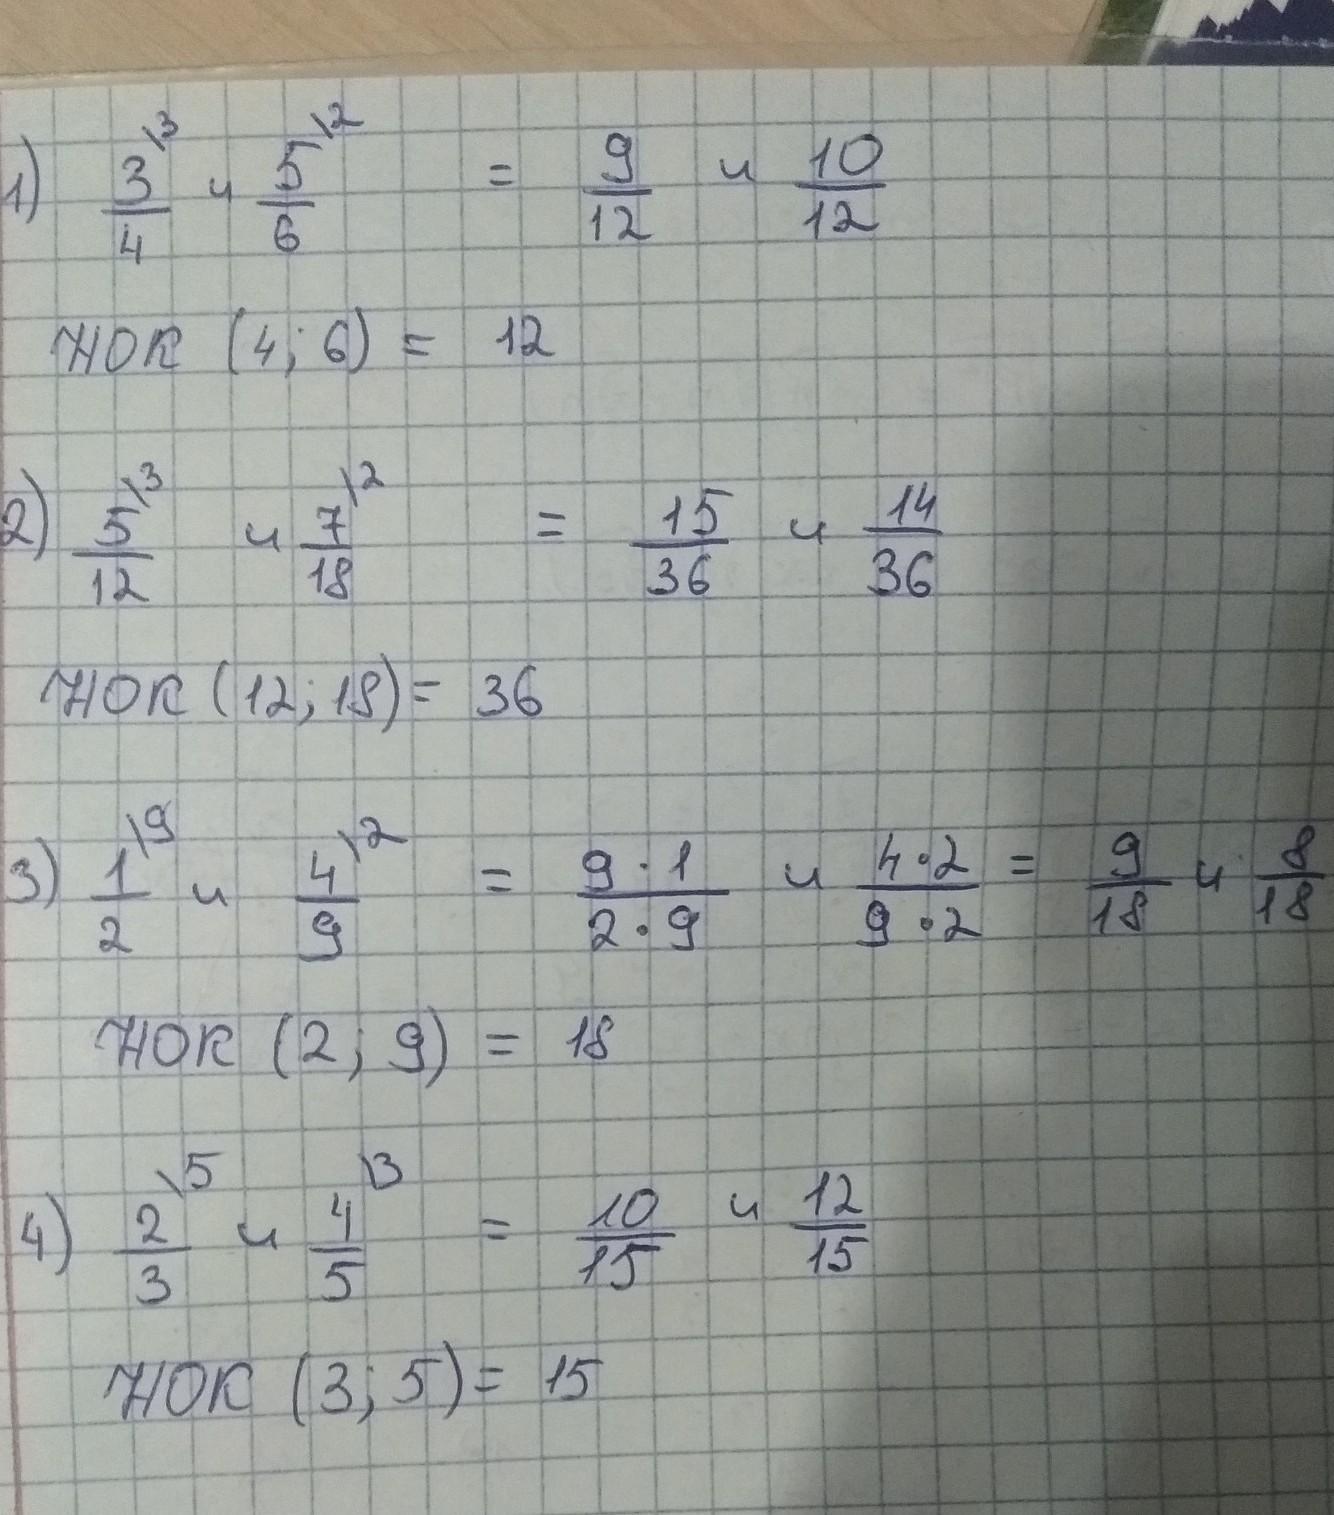 1) 3\3/4 и 5\2/6 = 9/12 и 10/12
НОК (4; 6) = 12
2) 5\3/12 и 7\2/18 = 15/36 и 14/36
НОК (12; 18) = 36
3) 1\9/2 и 4\2/9 = 9·1/2·9 и 4·2/9·2 = 9/18 и 8/18
НОК (2; 9) = 18
4) 2\5/3 и 4\3/5 = 10/15 и 12/15
НОК (3; 5) = 15